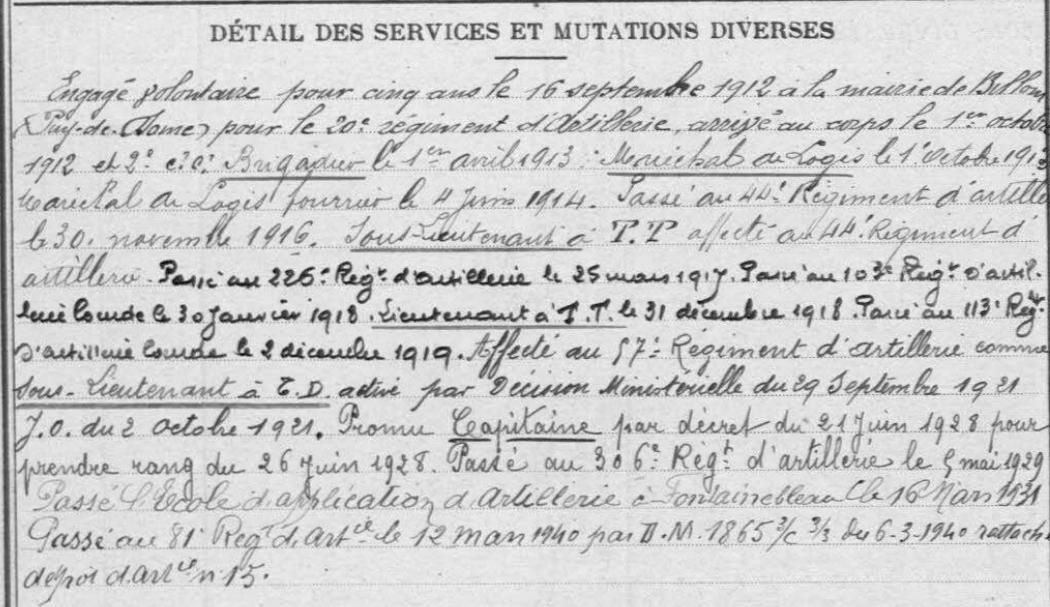 DÉTAIL DES SERVICES ET MUTATIONS DIVERSES
Engagé volontaire pour cinq ans le 16 septembre 1912 à la mairie de Billom
(Puy-de-Dome) pour le 20e régiment d'Artillerie, arrivé au corps le 1er octobre
1912 et 2e c.c. Brigadier le 1er avril 1913. Maréchal de Logis le 1er Octobre 1913
Maréchal de Logis fourrier le 4 Juin 1914. Passé au 44e Régiment d'artille
le 30 novembre 1916. Sous-Lieutenant à T.T affecté au 44e Régiment d'
artillerie. Passé au 226e Régt d'artillerie le 25 mars 1917. Passé au 103e Régt d'artil-
lerie lourde le 30 Janvier 1918. Lieutenant à T.T. le 31 décembre 1918. Passé au 113e Régt
d'artillerie lourde le 2 décembre 1919. Affecté au 57e Régiment d'artillerie comme
Sous-Lieutenant à T.D. active par Décision Ministérielle du 29 Septembre 1921
J.O. du 2 octobre 1921. Promu Capitaine par décret du 21 Juin 1928 pour
prendre rang du 26 Juin 1928. Passé au 306e Régt d'artillerie le 5 mai 1929
Passé l'Ecole d'application d'Artillerie à Fontainebleau le 16 Mars 1931
Passé au 81e Regt d'Artie le 12 mars 1940 par D.M. 1865 2/c 3/3 du 6-3-1940 rattach.
dépôt d'Artie n° 15.